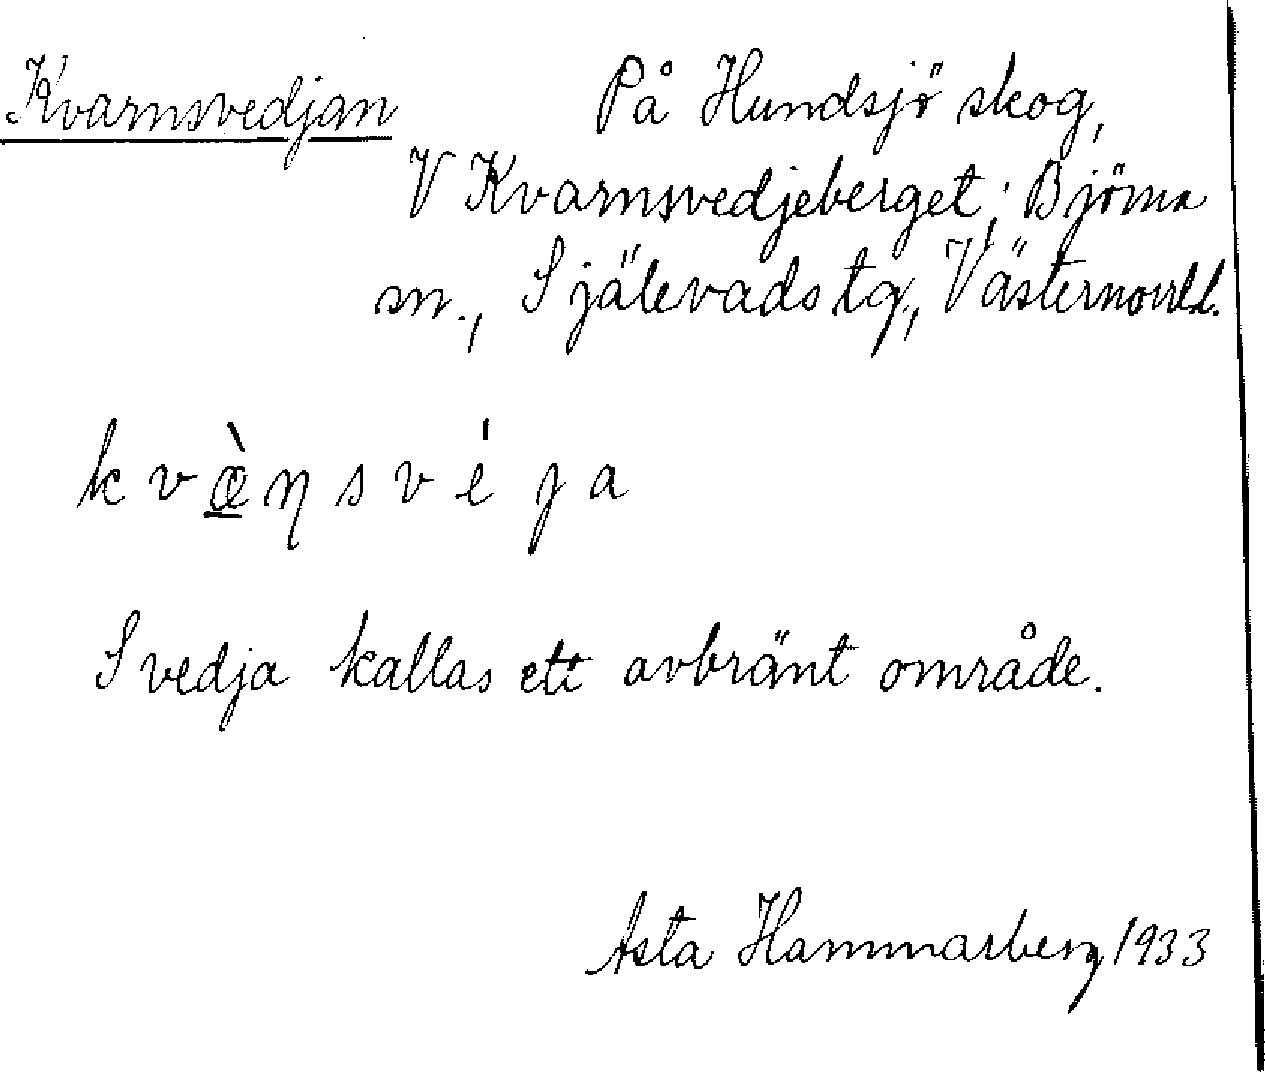 Kvarnsvedjan På Hundsjö skog,
V Kvarnsvedjeberget; Björna
sn., Själevads tg., Västernorrl.
kvœ̀ŋsvéja
Svedja kallas ett avbränt område.
Asta Hammarberg 1933